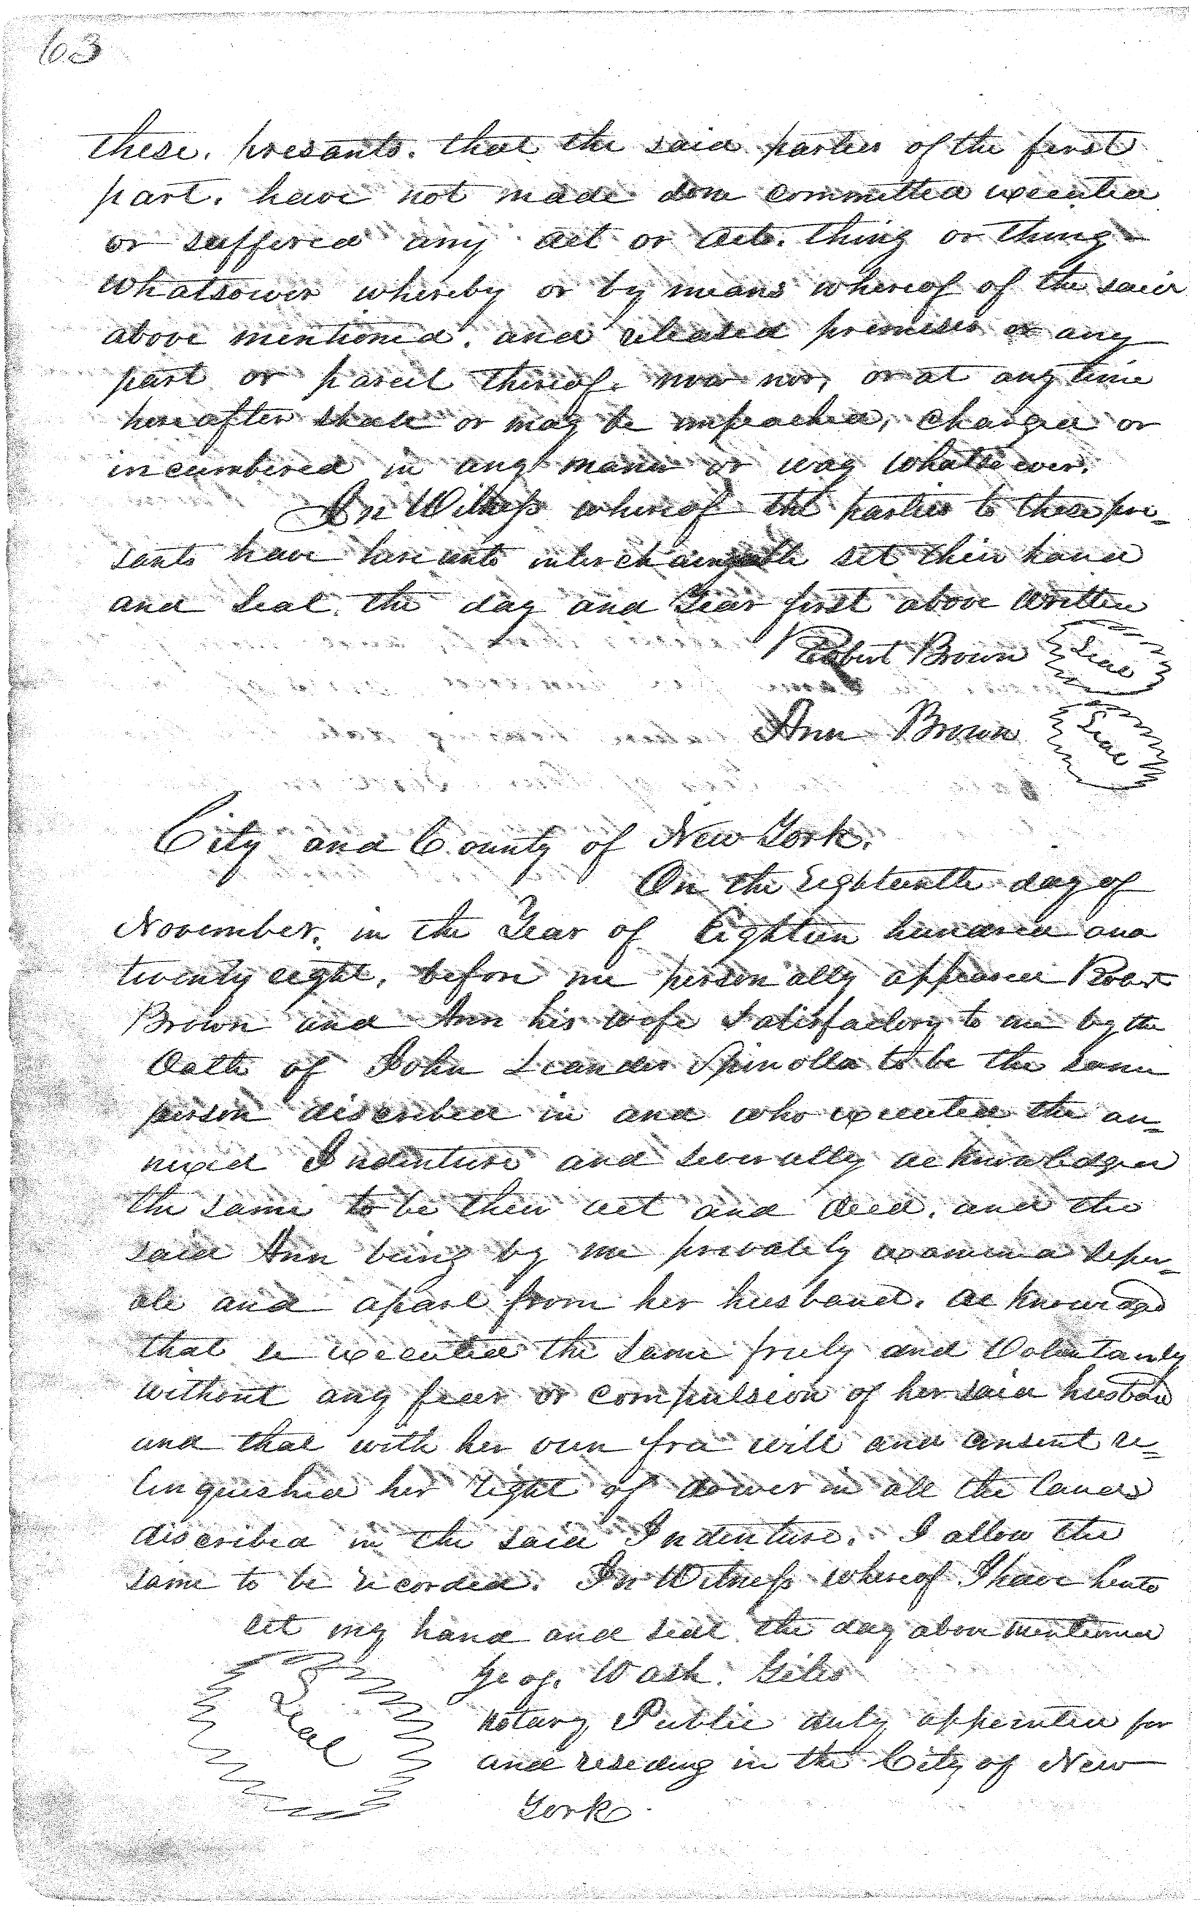 63
these. presants. that the said parties of the first
part. have not made done committed executed
or suffered any act or acts. thing or thing
whatsower whereby or by means whereof of the said
above mentioned. and released premises or any
part or parcil thereof. now nor, or at any time
hereafter shall or may be impeached, charged or
incumbered in any manner or way whatsoever.
In Witness whereof the parties to these pre=
sants have hereunto interchangable set their hand
and seal. the day and Year first above written
Robert Brown Seal
Ann Brown Seal
City and County of New York.
On the Eighteenth day of
November. in the Year of Eighteen hundred and
twenty eight. before me personally appeared Robert
Brown and Ann his wife Satisfactory to me by the
Oath of John Leander Spinolla to be the same
person discribed in and who executed the an=
nexed Indenture and severally acknowledged
the same to be their act and deed. and the
said Ann being by me privately examined seper=
ate and apart from her husband. acknowledged
that se executed the same freely and Voluntarily
without any fear or compulsion of her said husband
and that with her own free will and consent re=
linquished her right of dower in all the lands
discribed in the said Indenture. I allow the
same to be recorded. In Witness whereof I have hento
set my hand and seal the day above mentioned
Geog. Wash. Giles
Seal
Notary Public duly appointed for
and reseding in the City of New
York